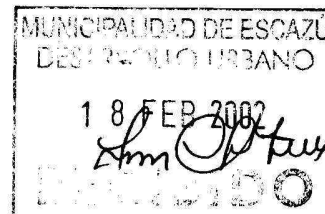 MUNICIPALIDAD DE ESCAZÚ
DESARROLLO URBANO
18 FEB 2002
RECIBIDO